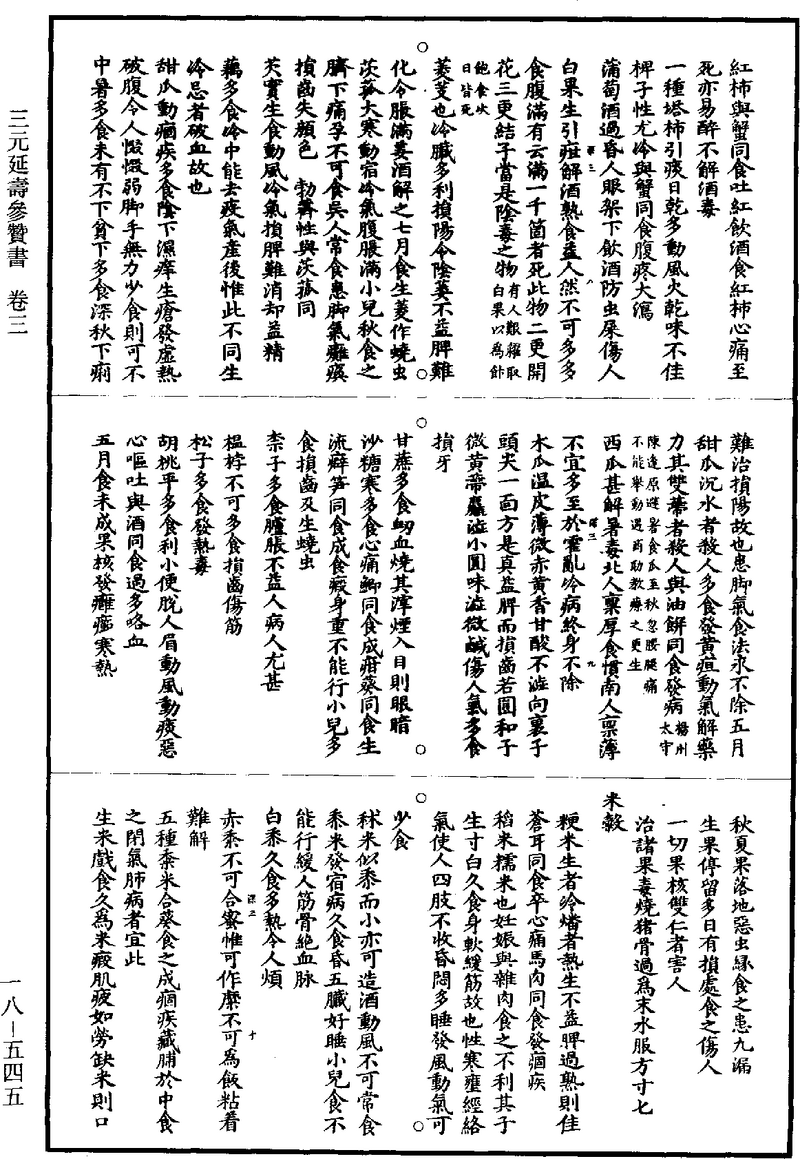 三元延壽參贊書　卷三
紅柿與蟹同食吐紅飲酒食紅柿心痛至
死亦易醉不解酒毒
一種塔柿引痰日乾多動風火乾味不佳
椑子性尤冷與蟹同食腹疼大瀉
蒲萄酒過昏人眼架下飲酒防虫屎傷人
白果生引疳解酒熟食益人然不可多多
食腹滿有云滿一千箇者死此物二更開
花三更結子當是陰毒之物有人艱糴取白果以為飰
飽食次日皆死
菱芰也冷臟多利損陽令陰萎不益脾難
化令脹滿薑酒解之七月食生菱作蟯虫
茨菰大寒動宿冷氣腹脹滿小兒秋食之
臍下痛孕不可食吳人常食患脚氣癱瘓
損齒失顏色　勃薺性與茨菰同
芡實生食動風冷氣損脾難消却益精
藕多食冷中能去疫氣產後惟此不同生
冷忌者破血故也
甜瓜動痼疾多食陰下濕痒生瘡發虛熱
破腹令人惙惙弱脚手無力少食則可不
中暑多食未有不下貧下多食深秋下痢
難治損陽故也患脚氣食法永不除五月
甜瓜沉水者殺人多食發黃疸動氣解藥
力其雙蔕者殺人與油餅同食發病楊州太守
陳逵原避暑食瓜至秋忽腰腿痛
不能舉動遇商助教療之更生
西瓜甚解暑毒北人稟厚食慣南人稟薄
不宜多至於霍亂冷病終身不除
木瓜温皮薄微赤黃香甘酸不澁向裏子
頭尖一面方是真益脾而損齒若圓和子
微黃蔕麤澁小圓味澁微鹹傷人氣多食
損牙
甘蔗多食衂血燒其滓煙入目則眼暗
沙糖寒多食心痛鯽同食成疳葵同食生
流癖笋同食成食瘕身重不能行小兒多
食損齒及生蟯虫
柰子多食臕脹不益人病人尤甚
榅桲不可多食損齒傷筋
松子多食發熱毒
胡桃平多食利小便脫人眉動風動痰惡
心嘔吐與酒同食過多咯血
五月食未成果核發癰癤寒熱
秋夏果落地惡虫緣食之患九漏
生果停留多日有損處食之傷人
一切果核雙仁者害人
治諸果毒燒猪骨過為末水服方寸七
米穀
粳米生者冷燔者熱生不益脾過熟則佳
蒼耳同食卒心痛馬肉同食發痼疾
稻米糯米也妊娠與雜肉食之不利其子
生寸白久食身軟緩筋故也性寒壅經絡
氣使人四肢不收昏悶多睡發風動氣可
少食
秫米似黍而小亦可造酒動風不可常食
黍米發宿病久食昏五臟好睡小兒食不
能行緩人筋骨絕血脉
白黍久食多熱令人煩
赤黍不可合蜜惟可作糜不可為飯粘着
難解
五種黍米合葵食之成痼疾藏脯於中食
之閉氣肺病者宜此
生米戲食久為米瘕肌疲如勞缺米則口
一八－五四五